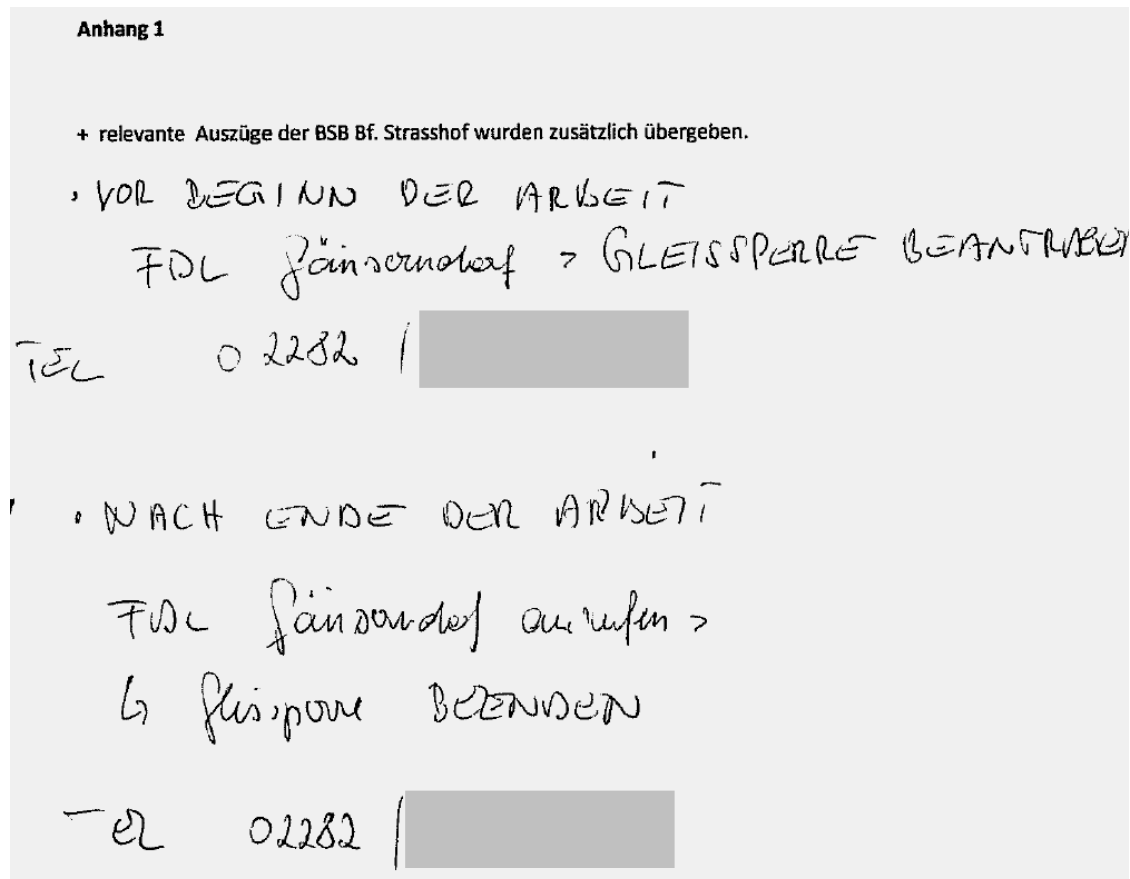 Anhang 1
+ relevante Auszüge der BSB Bf. Strasshof wurden zusätzlich übergeben.
• VOR BEGINN DER ARBEIT
FDL Gänserndorf > GLEISSPERRE BEANTRAGEN
TEL 02282 /
• NACH ENDE DER ARBEIT
FDL Gänserndorf anrufen >
↳ Gleissperre BEENDEN
TEL 02282 /